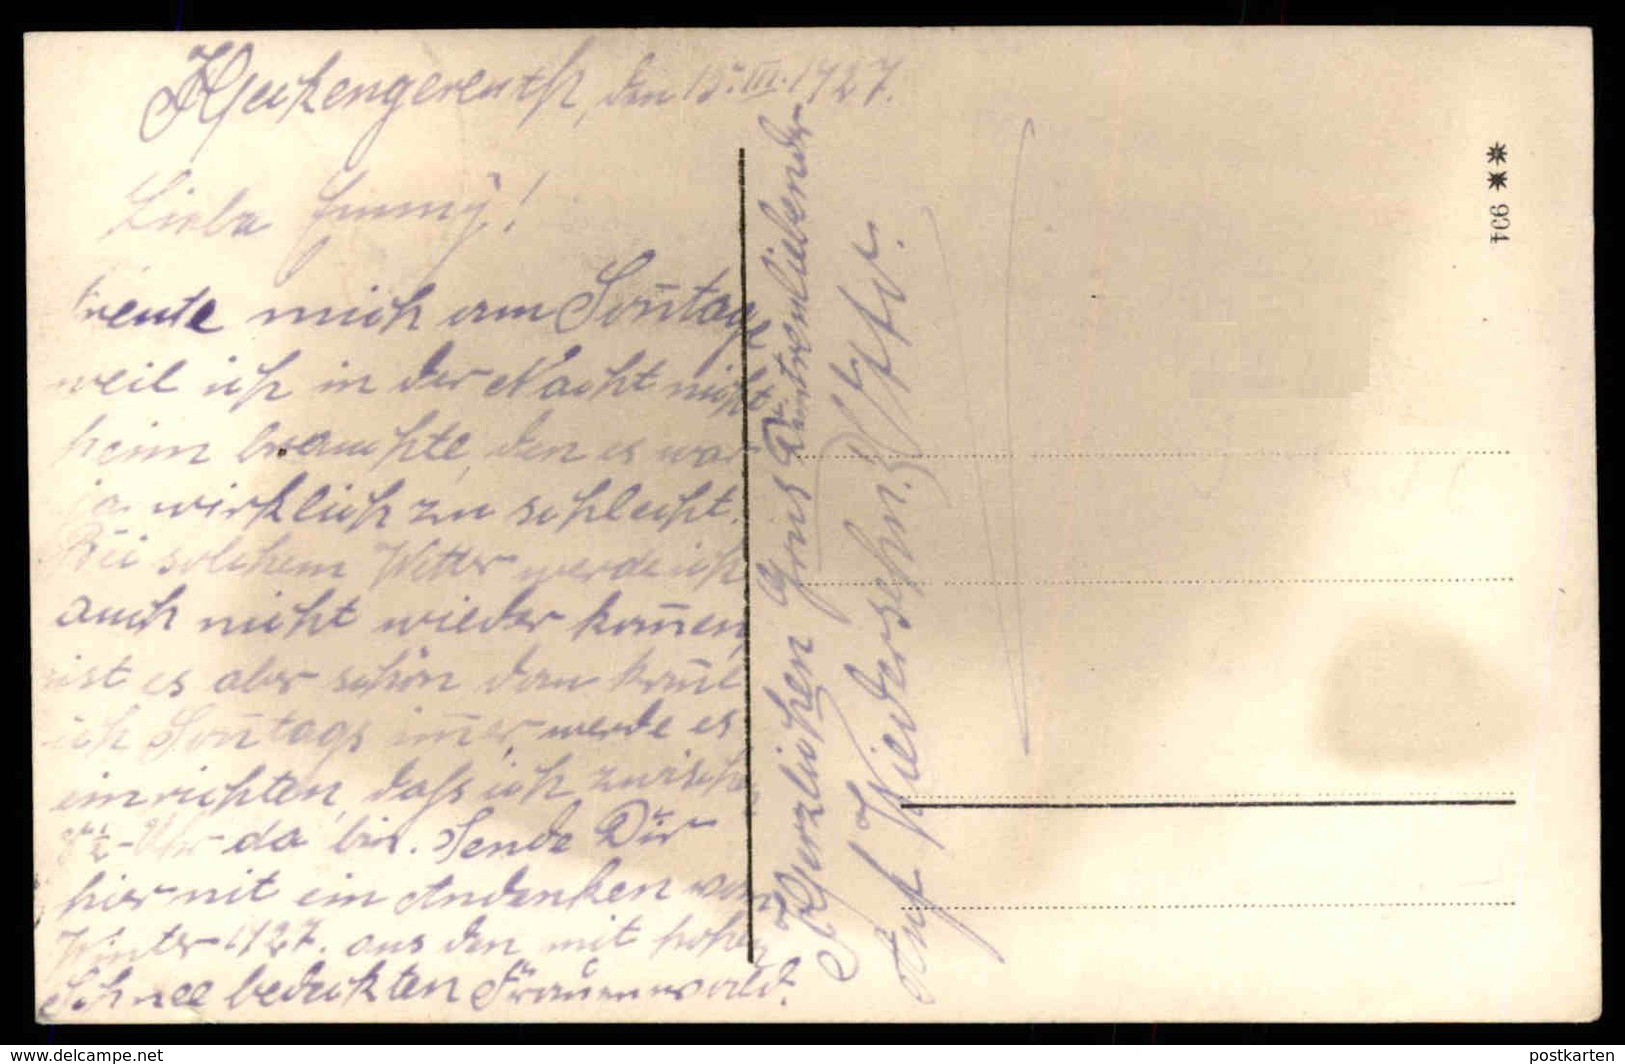 Heckengereuth, den 15. III. 1927.
Liebe Emmy!
Freute mich am Soñtage
weil ich in der Nacht nicht
heim brauchte, den es war
ja wirklich zu schlecht.
Bei solchem Wetter werde ich
auch nicht wieder kom̄en,
ist es aber schön dan kom̄e
ich Soñtags im̄er, werde es
einrichten, daß ich zwischen
½ Uhr da bin. Sende Dir
hier mit ein Andenken vom
Winter 1927. aus den mit hohen
Schnee bedeckten Frauenwald.
Herzlichen Grus Dein treuliebender
Otto.
Auf Wiedersehn.
** 994
www.delcampe.net
postkarten